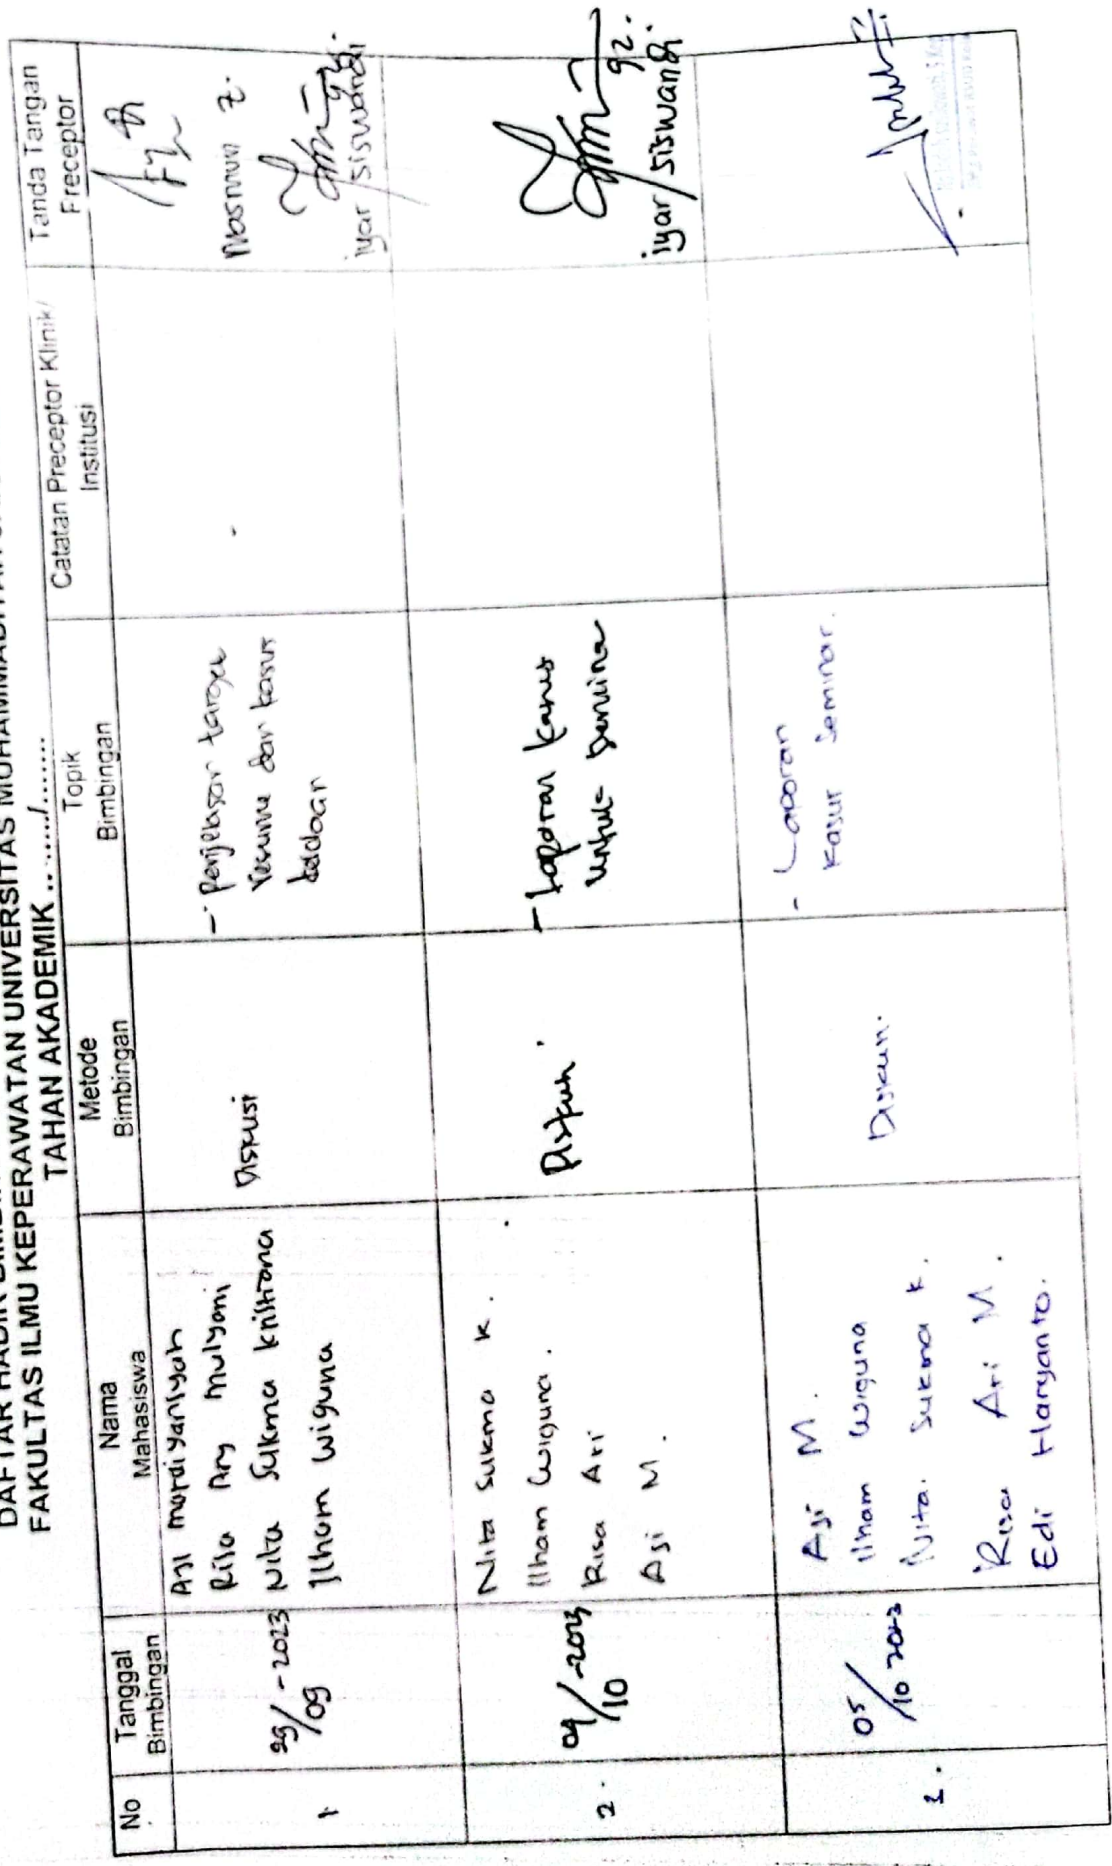 FAKULTAS ILMU KEPERAWATAN UNIVERSITAS MUHAMMADIYAH
TAHAN AKADEMIK ......../.......
No
Tanggal
Bimbingan
Nama
Mahasiswa
Metode
Bimbingan
Topik
Bimbingan
Catatan Preceptor Klinik/
Institusi
Tanda Tangan
Freceptor
1
29/09-2023
Aji mardiyaniyah
Risa Ary Mulyani
Nita Sukma Kristiana
Ilham Wiguna
Diskusi
- Penjelasan target
resume dan kasus
iyar/siswandi
2.
04/10-2023
Nita Sukma K.
Ilham Wiguna.
Risa Ari
Aji M.
Diskusi
- Laporan kasus
untuk
92.
iyar/siswandi
3.
05/10 2023
Aji M.
Ilham Wiguna
Nita. Sukma K.
Risa Ari M.
Edi Haryanto.
Diskusi.
- Laporan
Kasus Seminar.